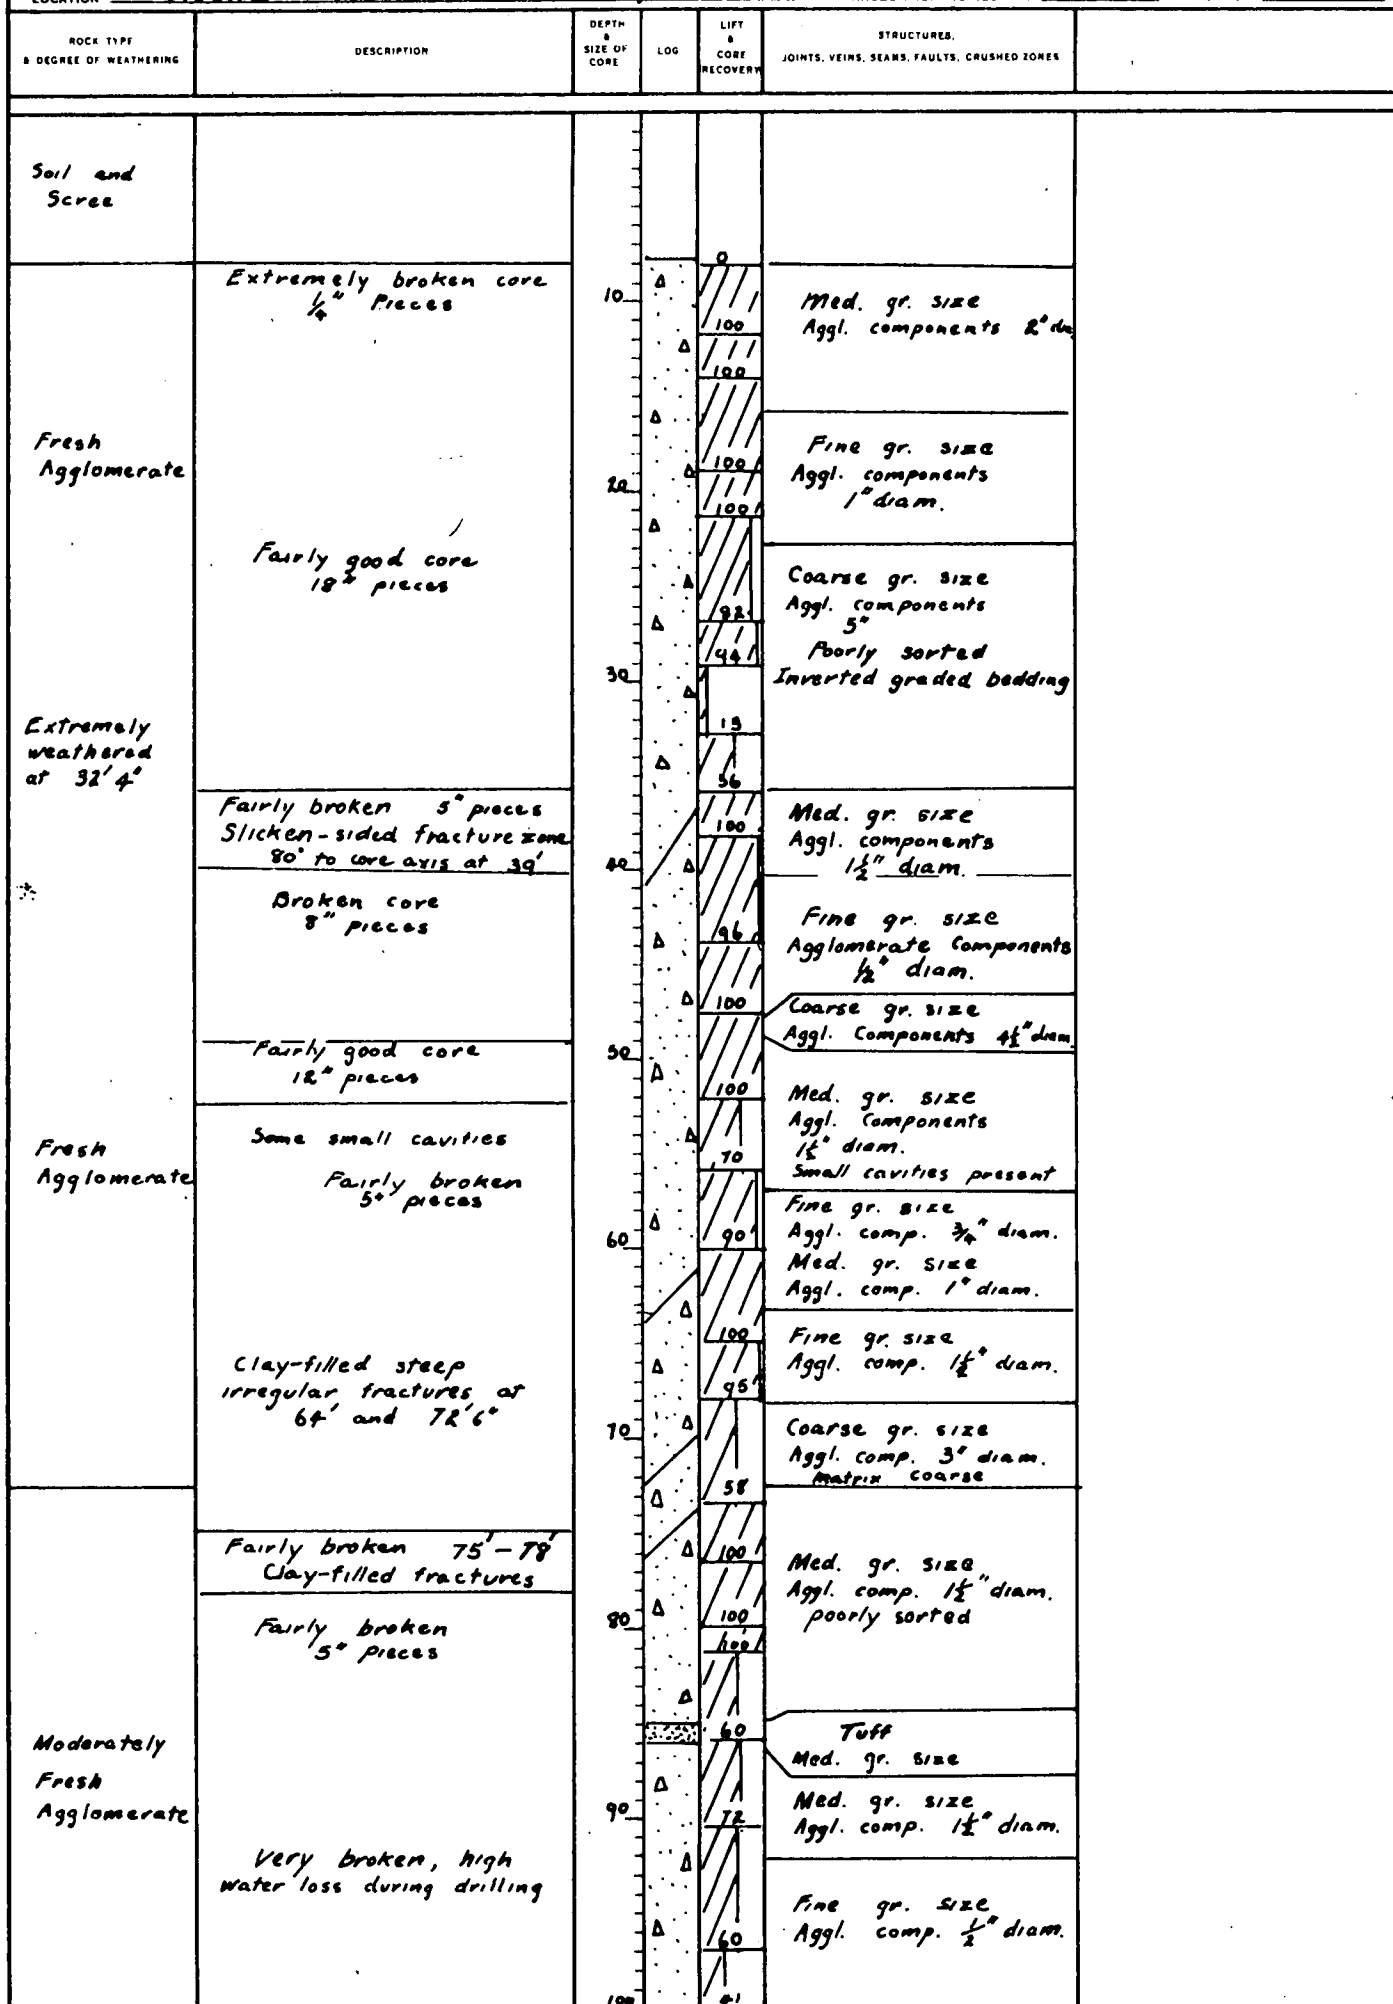 LOCATION
ROCK TYPE
& DEGREE OF WEATHERING
DESCRIPTION
DEPTH
&
SIZE OF
CORE
LOG
LIFT
&
CORE
RECOVERY
STRUCTURES,
JOINTS, VEINS, SEAMS, FAULTS, CRUSHED ZONES
Soil and
Scree
Fresh
Agglomerate
Extremely
weathered
at 32'4"
Fresh
Agglomerate
Moderately
Fresh
Agglomerate
Extremely broken core
1/4" Pieces
Fairly good core
18" pieces
Fairly broken 5" pieces
Slicken-sided fracture zone
80° to core axis at 39'
Broken core
8" pieces
Fairly good core
12" pieces
Some small cavities
Fairly broken
5" pieces
Clay-filled steep
irregular fractures at
64' and 72'6"
Fairly broken 75'-78'
Clay-filled fractures
Fairly broken
5" Pieces
Very broken, high
water loss during drilling
10
20
30
40
50
60
70
80
90
100
0
100
100
100
100
92
94
15
56
100
96
100
100
70
90
100
95
58
100
100
100
60
72
60
41
Med. gr. size
Aggl. components 2" dia
Fine gr. size
Aggl. components
1" diam.
Coarse gr. size
Aggl. components
5"
Poorly sorted
Inverted graded bedding
Med. gr. size
Aggl. components
1½" diam.
Fine gr. size
Agglomerate Components
½" diam.
Coarse gr. size
Aggl. Components 4½" diam
Med. gr. size
Aggl. Components
1½" diam.
Small cavities present
Fine gr. size
Aggl. comp. ¾" diam.
Med. gr. size
Aggl. comp. 1" diam.
Fine gr. size
Aggl. comp. 1½" diam.
Coarse gr. size
Aggl. comp. 3" diam.
Matrix coarse
Med. gr. size
Aggl. comp. 1½" diam.
poorly sorted
Tuff
Med. gr. size
Med. gr. size
Aggl. comp. 1½" diam.
Fine gr. size
Aggl. comp. ½" diam.